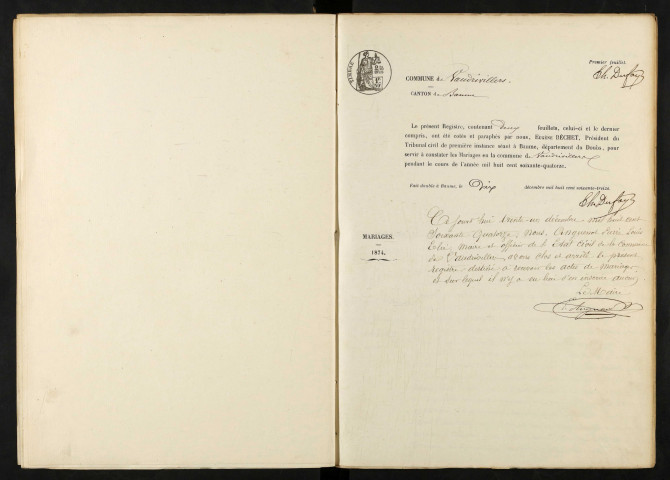 TIMBRE
Premier feuillet.
Ch. Dufay
COMMUNE de Vaudrivillers.
CANTON de Baume
Le présent Registre, contenant deux feuillets, celui-ci et le dernier
compris, ont été cotés et paraphés par nous, Erasme BECHET, Président du
Tribunal civil de première instance séant à Baume, département du Doubs, pour
servir à constater les Mariages en la commune de Vaudrivillers
pendant le cours de l'année mil huit cent soixante-quatorze.
Fait double à Baume, le Dix décembre mil huit cent soixante-treize.
Ch. Dufay
MARIAGES.
1874.
Ce jourd'hui trente-un décembre mil huit cent
soixante Quatorze, Nous, Louis
maire et officier de l'Etat civil de la Commune
de Vaudrivillers, avons clos et arrêté le présent
registre destiné à recevoir les actes de mariages
et sur lequel il n'y a eu lieu d'en inscrire aucun
Le Maire